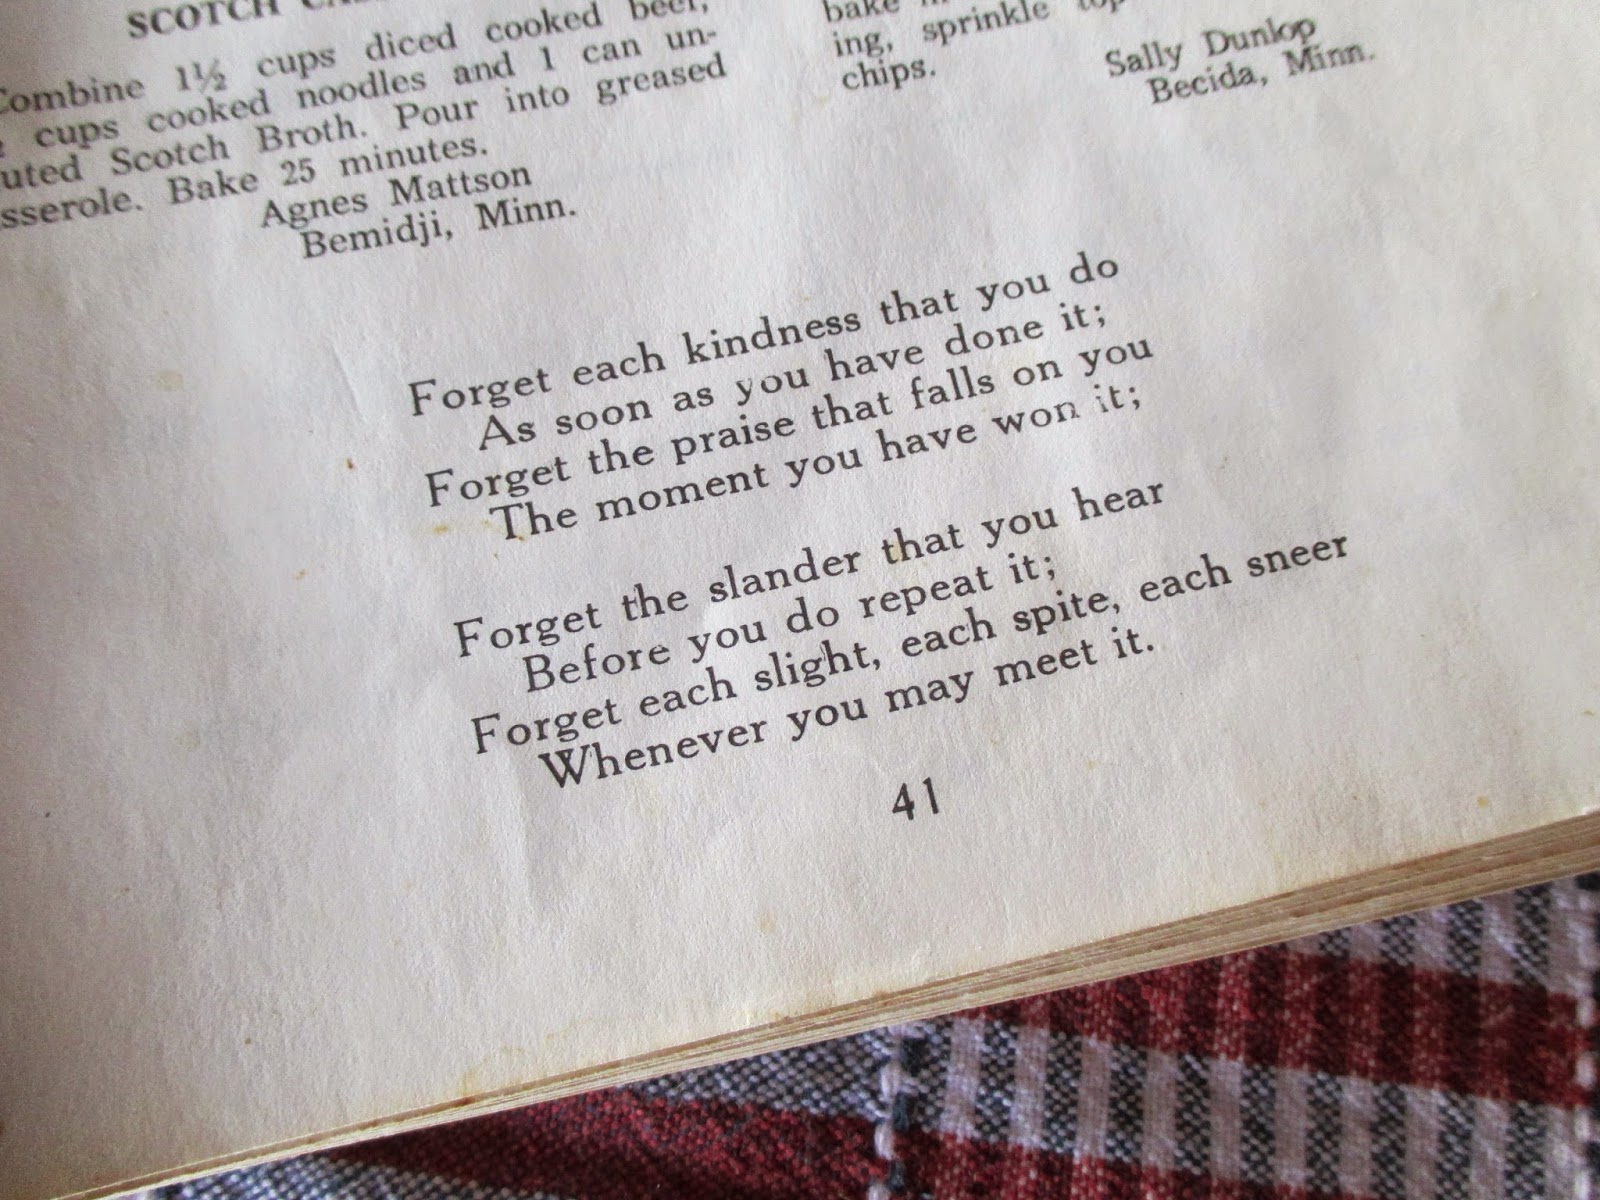 SCOTCH
Combine 1½ cups diced cooked beef,
cups cooked noodles and 1 can un-
uted Scotch Broth. Pour into greased
sserole. Bake 25 minutes.
Agnes Mattson
Bemidji, Minn.
bake
ing, sprinkle
chips.
Sally Dunlop
Becida, Minn.
Forget each kindness that you do
As soon as you have done it;
Forget the praise that falls on you
The moment you have won it;
Forget the slander that you hear
Before you do repeat it;
Forget each slight, each spite, each sneer
Whenever you may meet it.
41